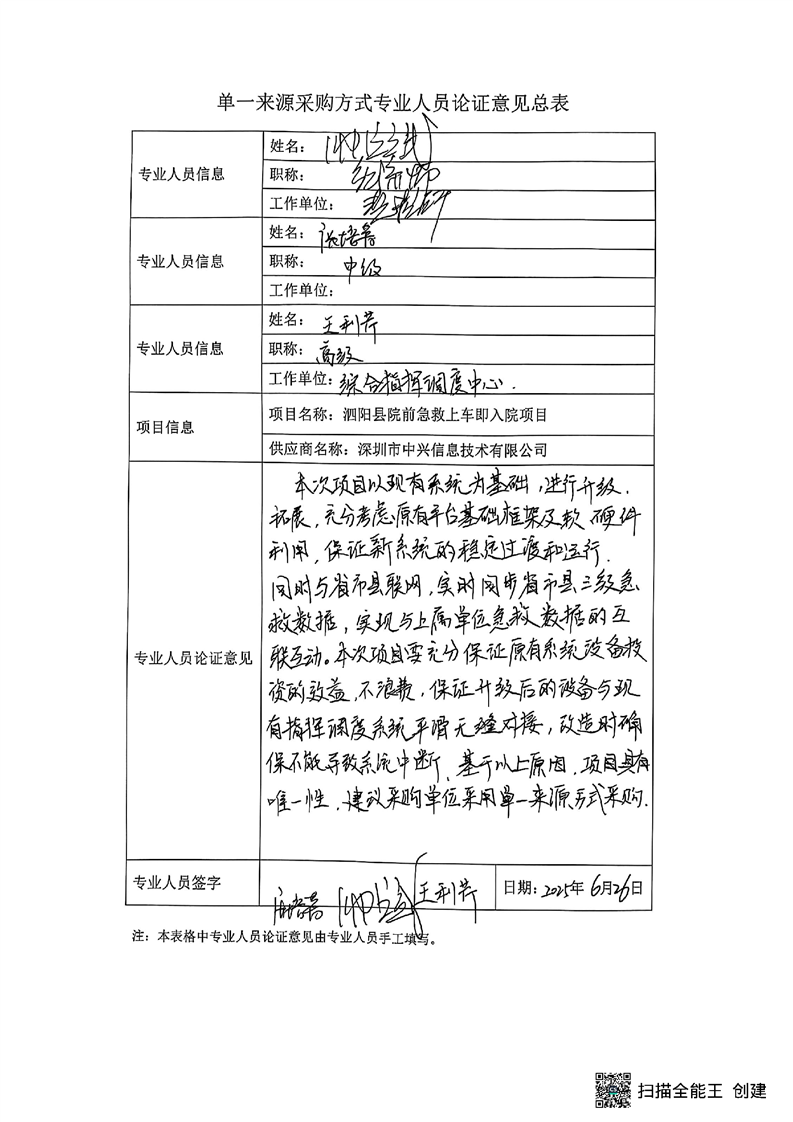 单一来源采购方式专业人员论证意见总表
专业人员信息
姓名:
职称:
工作单位:
专业人员信息
姓名:
职称: 中级
工作单位:
专业人员信息
姓名: 王利芹
职称: 高级
工作单位: 综合指挥调度中心.
项目信息
项目名称: 泗阳县院前急救上车即入院项目
供应商名称: 深圳市中兴信息技术有限公司
专业人员论证意见
本次项目以现有系统为基础,进行升级.
拓展,充分考虑原有平台基础框架及软、硬件
利用,保证新系统的稳定过渡和运行.
同时与省市县联网,实时同步省市县三级急
救数据,实现与上属单位急救数据的互
联互动。本次项目要充分保证原有系统设备投
资的效益,不浪费,保证升级后的设备与现
有指挥调度系统平滑无缝对接,改造时确
保不能导致系统中断、基于以上原因,项目具有
唯一性,建议采购单位采用单一来源方式采购.
专业人员签字
王利芹
日期: 2025年 6月26日
注: 本表格中专业人员论证意见由专业人员手工填写。
扫描全能王 创建